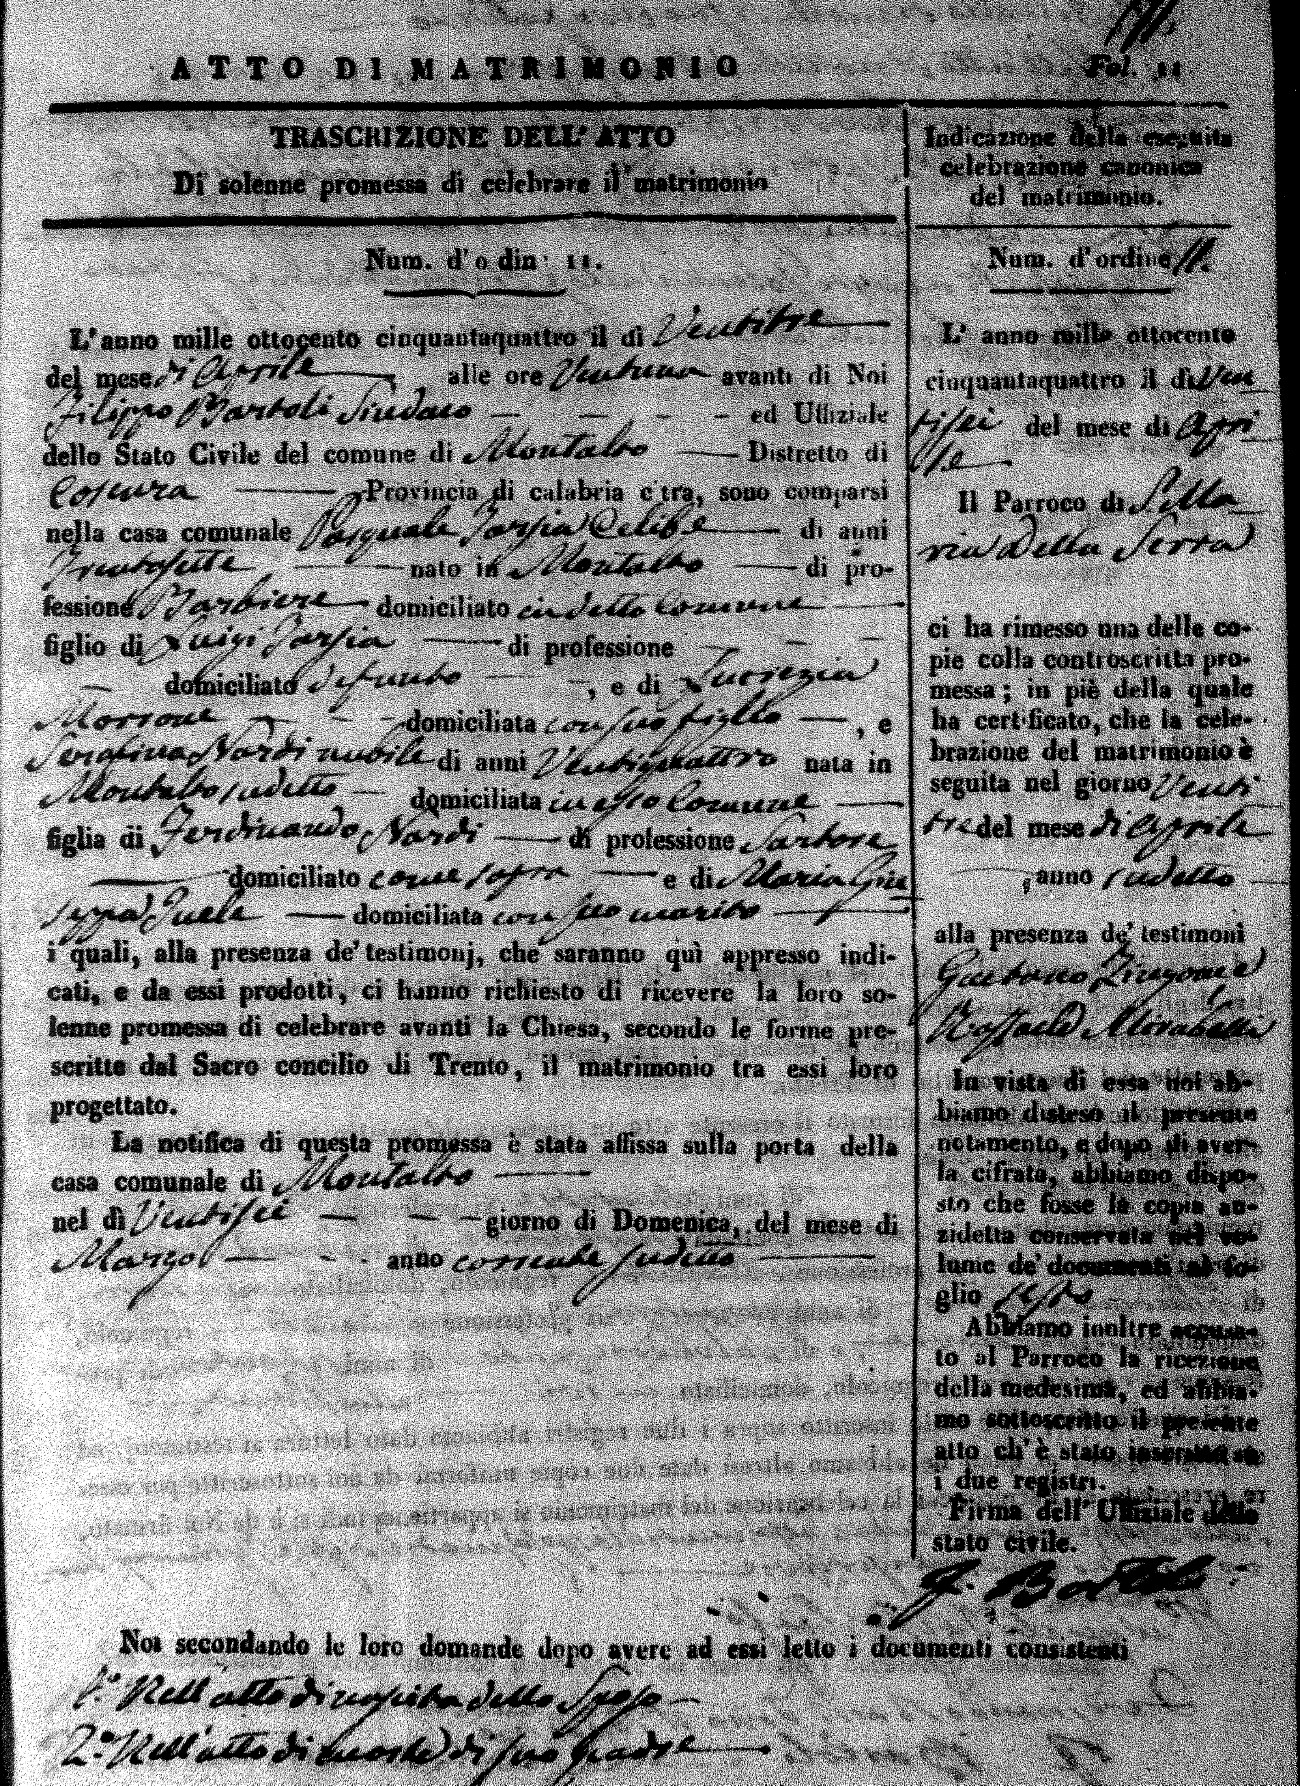 ATTO DI MATRIMONIO
Fol. 11
TRASCRIZIONE DELL' ATTO
Di solenne promessa di celebrare il matrimonio
Num. d' o din. 11.
L' anno mille ottocento cinquantaquattro il dì Ventitre
del mese di Aprile alle ore Ventuna avanti di Noi
Filippo Bartoli Sindaco ed Uffiziale
dello Stato Civile del comune di Montalto Distretto di
Cosenza Provincia di calabria citra, sono comparsi
nella casa comunale Pasquale Farsia Celibe di anni
Trentasette nato in Montalto di pro-
fessione Barbiere domiciliato in detto Comune
figlio di Luigi Farsia di professione
domiciliato defunto, e di Lucrezia
Morrone domiciliata con suo figlio, e
Serafina Nardi nubile di anni Ventiquattro nata in
Montalto sudetto domiciliata in esso Comune
figlia di Ferdinando Nardi di professione Sartore
domiciliato come sopra e di Maria Giu
seppa domiciliata con suo marito
i quali, alla presenza de' testimonj, che saranno quì appresso indi-
cati, e da essi prodotti, ci hanno richiesto di ricevere la loro so-
lenne promessa di celebrare avanti la Chiesa, secondo le forme pre-
scritte dal Sacro concilio di Trento, il matrimonio tra essi loro
progettato.
La notifica di questa promessa è stata affissa sulla porta della
casa comunale di Montalto
nel dì Ventisei giorno di Domenica, del mese di
Marzo anno corrente sudetto
Indicazione della eseguita
celebrazione canonica
del matrimonio.
Num. d' ordine 11.
L' anno mille ottocento
cinquantaquattro il dì Ven
tisei del mese di Apri
le
Il Parroco di S. Ma
ria della Serra
ci ha rimesso una delle co-
pie colla controscritta pro-
messa; in piè della quale
ha certificato, che la cele-
brazione del matrimonio è
seguita nel giorno Venti
tre del mese di Aprile
, anno sudetto
alla presenza de' testimoni
Gaetano e
Raffaele Mirabelli
In vista di essa noi ab-
biamo disteso il presente
notamento, e dopo di aver-
la cifrata, abbiamo dispo-
sto che fosse la copia an-
zidetta conservata nel vo-
lume de' documenti al fo-
glio sesto
Abbiamo inoltre accusa-
to al Parroco la ricezione
della medesima, ed abbia-
mo sottoscritto il presente
atto ch' è stato inscritto su
i due registri.
Firma dell' Uffiziale dello
stato civile.
F. Bartoli
Noi secondando le loro domande dopo avere ad essi letto i documenti consistenti
1.° Nell'atto di nascita dello Sposo
2.° Nell'atto di morte di suo padre